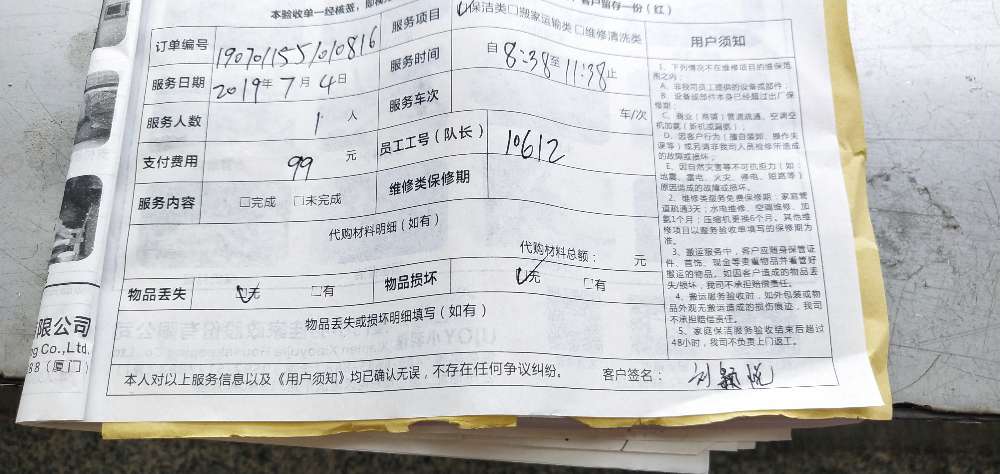 本验收单一经核签，即视
客户留存一份（红）
订单编号 1907011551010816 服务项目 ☑保洁类□搬家运输类□维修清洗类
服务日期 2019年7月4日 服务时间 自8:38至11:38止
服务人数 1人 服务车次 车/次
支付费用 99元 员工工号（队长） 10612
服务内容 □完成 □未完成 维修类保修期
代购材料明细（如有）
代购材料总额： 元
物品丢失 ☑无 □有 物品损坏 ☑无 □有
物品丢失或损坏明细填写（如有）
本人对以上服务信息以及《用户须知》均已确认无误，不存在任何争议纠纷。 客户签名： 刘颖悦
用户须知
1、下列情况不在维修项目的维保范
围之内：
A、非我司员工提供的设备或部件；
B、设备或部件本身已经超过出厂保
修期；
C、商业（商铺）管道疏通、空调空
机加氨（新机或漏氨）；
D、因客户行为（擅自装卸、操作失
误等）或另请非我司人员检修所造成
的故障或损坏；
E、因自然灾害等不可抗拒力（如：
地震、雷电、火灾、停电、短路等）
原因造成的故障或损坏。
2、维修类服务免费保修期：家庭管
道疏通3天；水电维修、空调维修、加
氨1个月；压缩机更换6个月。其他维
修项目以服务验收单填写的保修期为
准。
3、搬运服务中，客户应随身保管证
件、首饰、现金等贵重物品并看管好
搬运的物品。如因客户造成的物品丢
失/损坏，我司不承担赔偿责任。
4、搬运服务验收时，如外包装或物
品外观无搬运造成的损伤痕迹，我司
不承担赔偿责任。
5、家庭保洁服务验收结束后超过
48小时，我司不负责上门返工。
限公司
ng Co.,Ltd.
88（厦门）